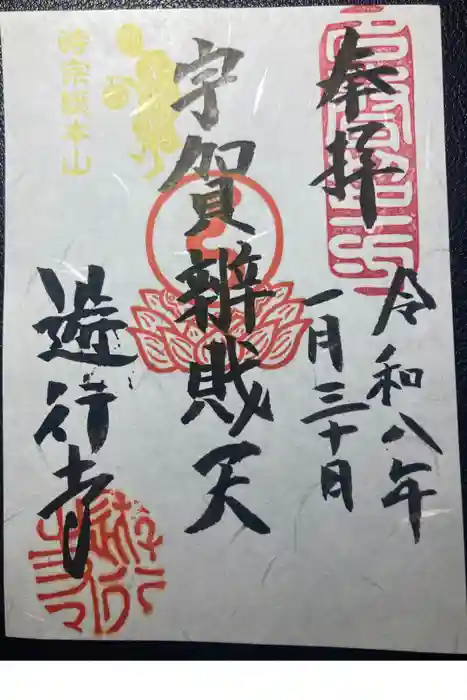 奉拝
令和八年
一月三十日
宇賀辨財天
時宗総本山
遊行寺